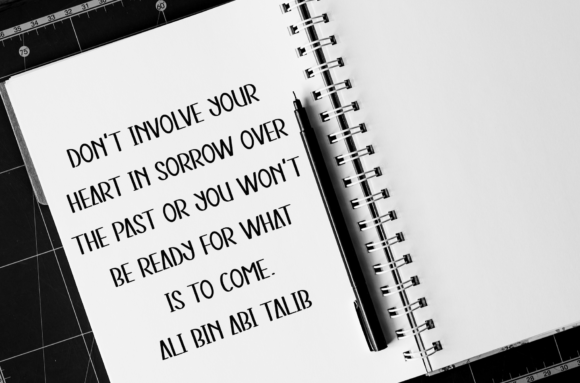 36 35 34 33 32 31 30
60
75
DON'T INVOLVE YOUR
HEART IN SORROW OVER
THE PAST OR YOU WON'T
BE READY FOR WHAT
IS TO COME.
ALI BIN ABI TALIB